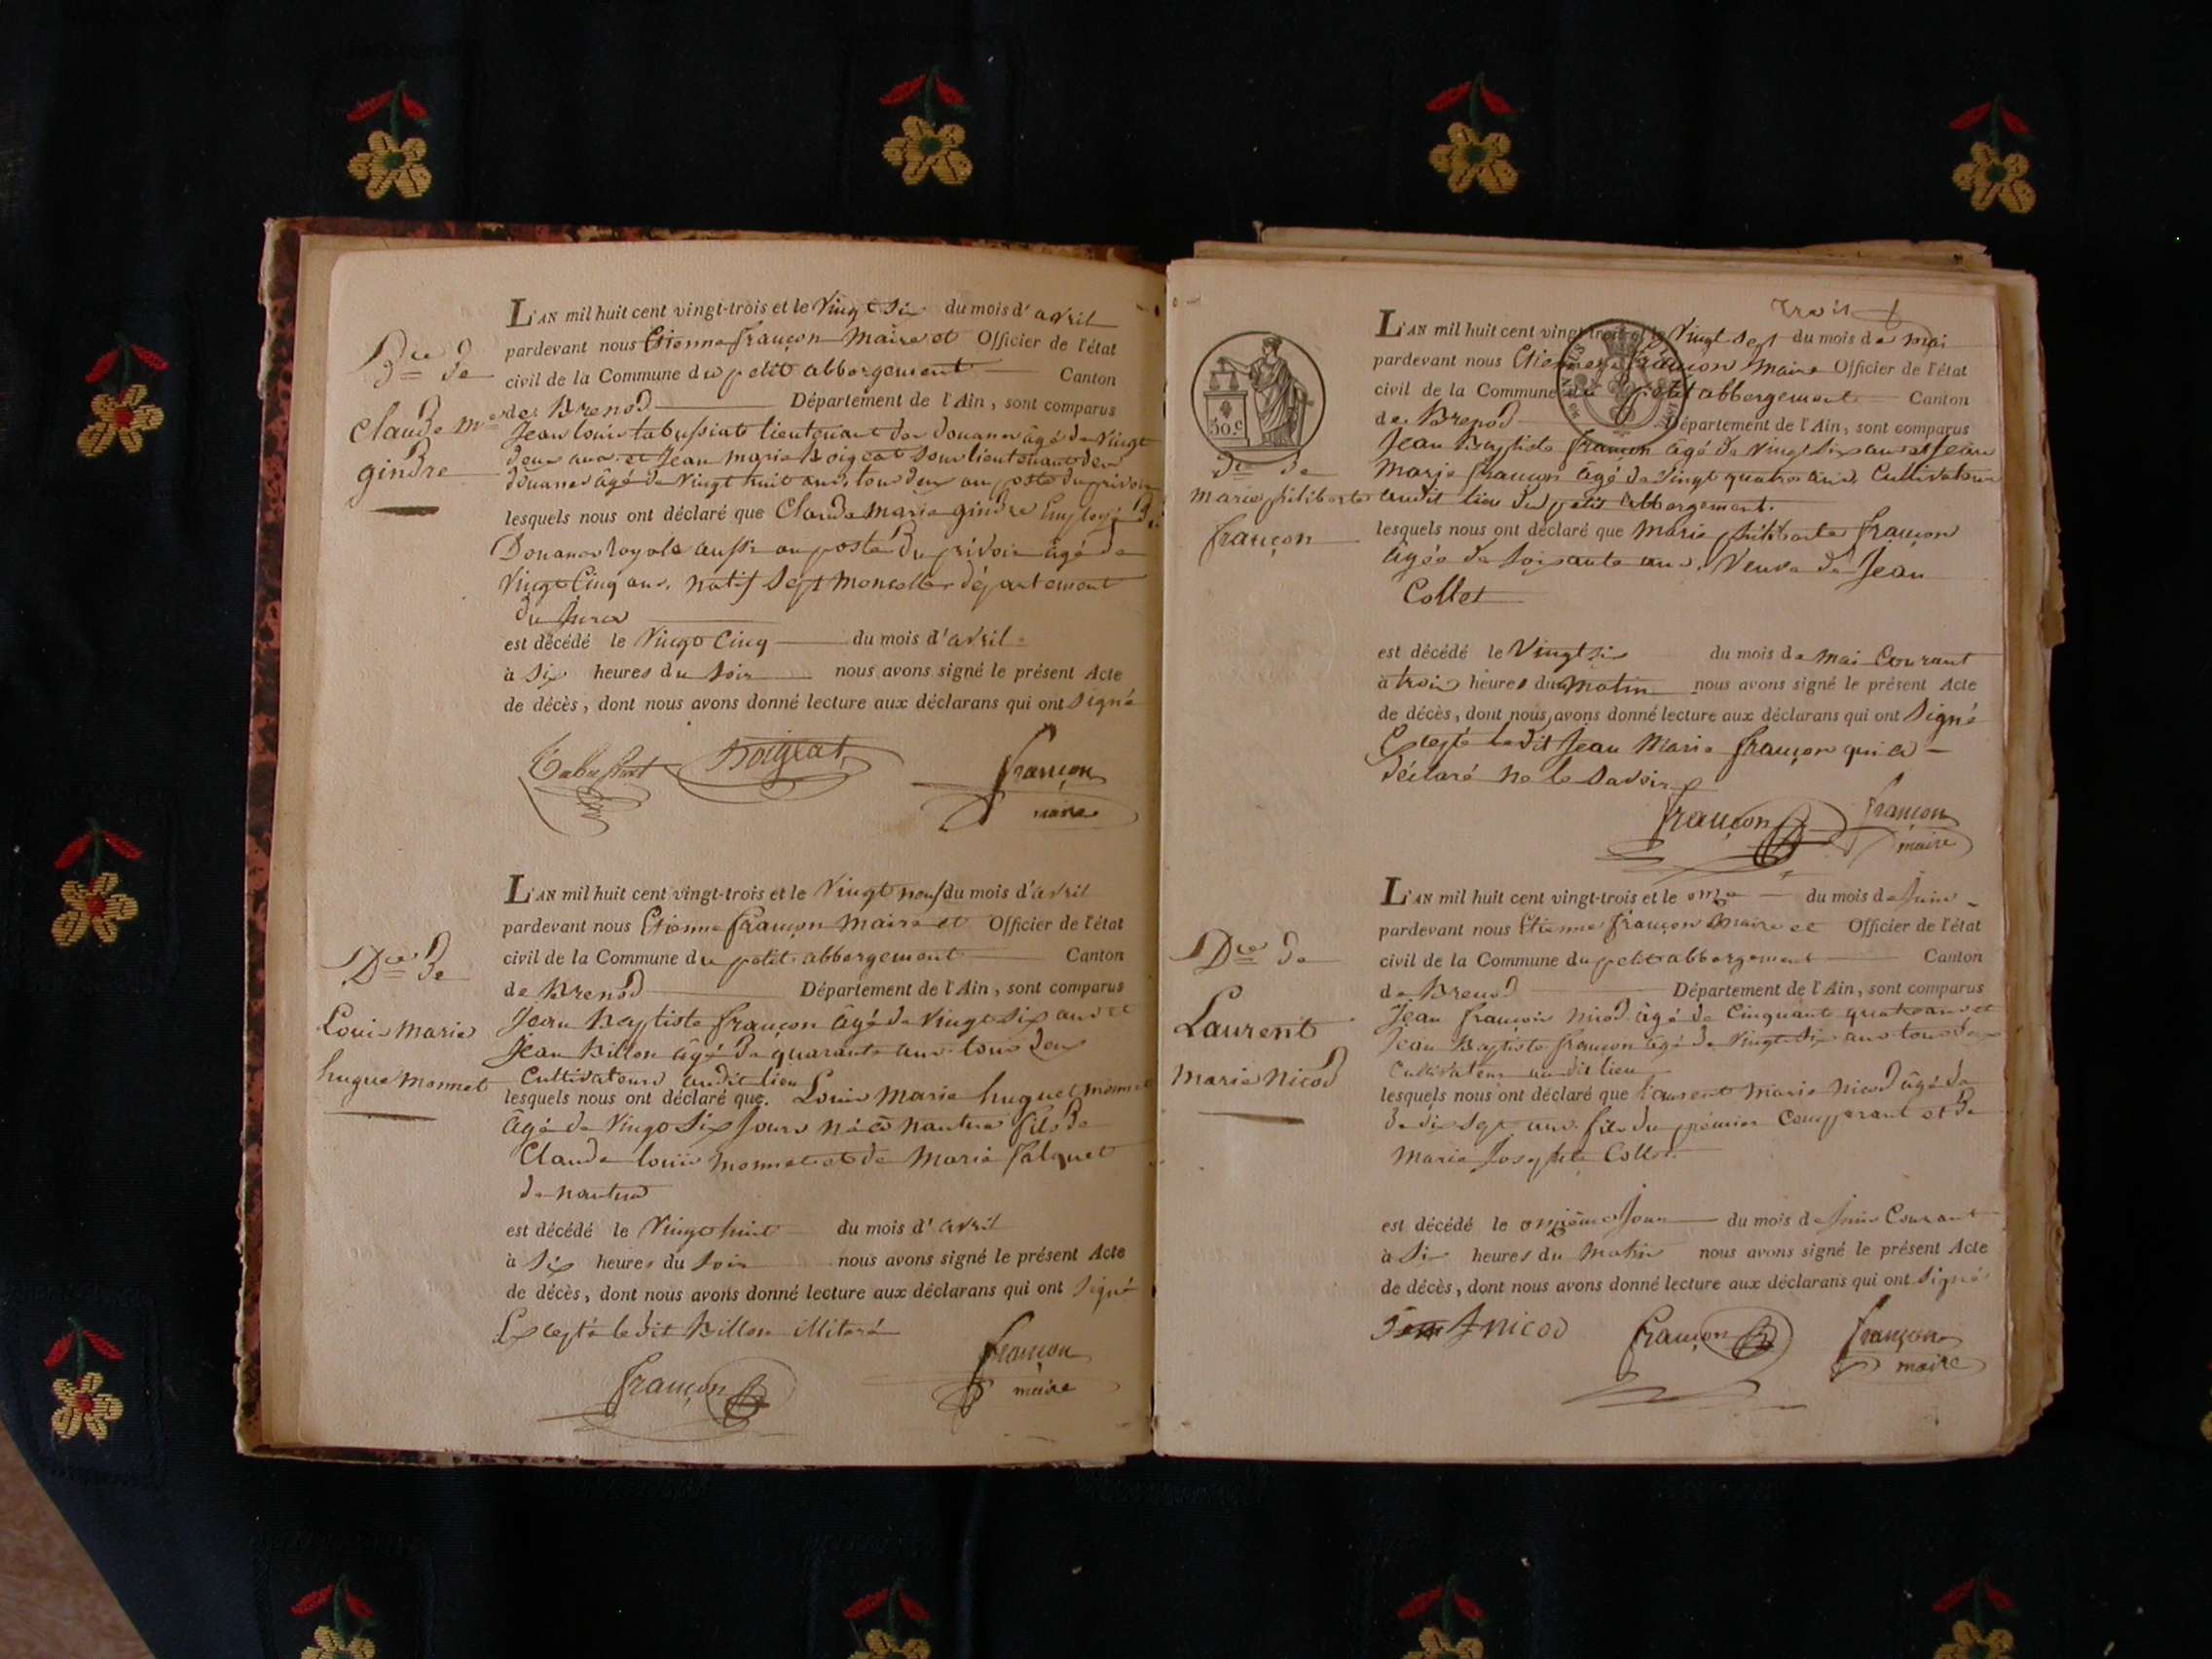 L'AN mil huit cent vingt-trois et le Vingt Six du mois d'avril
pardevant nous Etienne françon Maire et Officier de l'état
civil de la Commune du petit abbergement Canton
de Brenod Département de l'Ain, sont comparus
Dce de
Claude Me
gindre
Jean louis tabussiat lieutenant des douanes âgé de Vingt
deux ans et Jean marie Boigeat sous lieutenant des
douanes âgé de Vingt huit ans, tous deux au poste du privoir
lesquels nous ont déclaré que Claude Marie gindre Employé des
Douanes royales aussi au poste du privoir âgé de
Vingt Cinq ans, natif Sept Moncelles département
du Jura
est décédé le Vingt Cinq du mois d'avril
à Six heures du Soir nous avons signé le présent Acte
de décès, dont nous avons donné lecture aux déclarans qui ont Signé
Tabussiat Boigeat françon
maire
L'AN mil huit cent vingt-trois et le Vingt neuf du mois d'avril
pardevant nous Etienne françon Maire et Officier de l'état
civil de la Commune du petit abbergement Canton
de Brenod Département de l'Ain, sont comparus
Dce de
Louis Marie
hugue Monnet
Jean Baptiste françon âgé de Vingt Six ans et
Jean Billon âgé de quarante ans tous deux
Cultivateurs audit lieu
lesquels nous ont déclaré que Louis Marie huguet monnet
âgé de Vingt Six Jours né à nantua fils de
Claude louis monnet et de Marie Jalquet
de nantua
est décédé le Vingt huit du mois d'avril
à Six heures du Soir nous avons signé le présent Acte
de décès, dont nous avons donné lecture aux déclarans qui ont Signé
Excepté ledit Billon illitéré
françon françon
maire
trois
L'AN mil huit cent vingt-trois et le Vingt Sept du mois de mai
pardevant nous Etienne françon Maire Officier de l'état
civil de la Commune du petit abbergement Canton
de Brenod Département de l'Ain, sont comparus
50.c
Dce de
Marie philiberte
françon
Jean Baptiste françon âgé de Vingt Six ans et Jean
Marie françon âgé de Vingt quatre ans, Cultivateurs
audit lieu du petit abbergement.
lesquels nous ont déclaré que Marie philiberte françon
âgée de Soixante ans, Veuve de Jean
Collet
est décédé le Vingt Six du mois de mai Courant
à trois heures du Matin nous avons signé le présent Acte
de décès, dont nous avons donné lecture aux déclarans qui ont Signé
Excepté ledit Jean Marie françon qui a
déclaré ne le Savoir
françon françon
maire
L'AN mil huit cent vingt-trois et le onze du mois de Juin
pardevant nous Etienne françon Maire et Officier de l'état
civil de la Commune du petit abbergement Canton
de Brenod Département de l'Ain, sont comparus
Dce de
Laurent
Marie Nicod
Jean françois nicod âgé de Cinquante quatre ans et
Jean Baptiste françon âgé de Vingt Six ans tous deux
Cultivateurs audit lieu
lesquels nous ont déclaré que Laurent Marie Nicod âgé de
de dix Sept ans fils du premier Comparant et de
Marie Josephte Collet
est décédé le onzième Jour du mois de Juin Courant
à Six heures du Matin nous avons signé le présent Acte
de décès, dont nous avons donné lecture aux déclarans qui ont Signé
nicod françon françon
maire